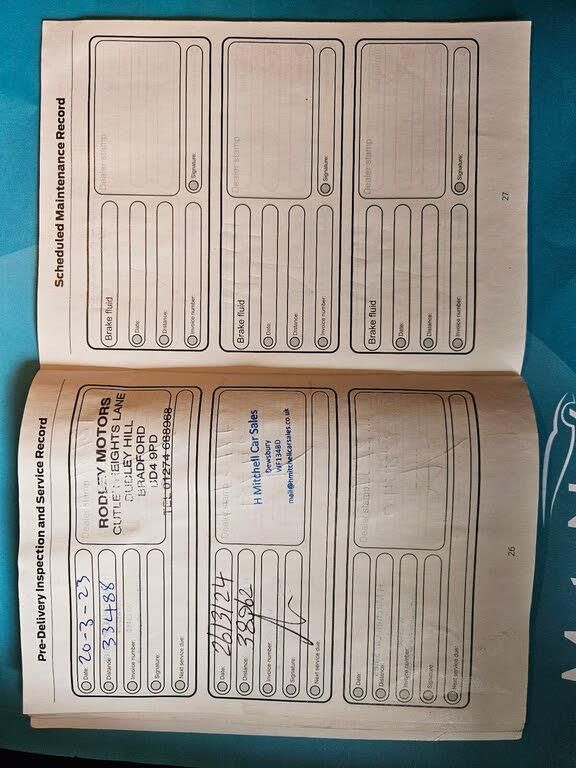 Pre-Delivery Inspection and Service Record
Date: 20-3-23
Distance: 33488
Invoice number:
Signature:
Next service due:
Dealer stamp
RODLEY MOTORS
CUTLER HEIGHTS LANE
DUDLEY HILL
BRADFORD
BD4 9PD
TEL 01274 688968
Date: 26/3/24
Distance: 38962
Invoice number:
Signature:
Next service due:
Dealer stamp
H Mitchell Car Sales
Dewsbury
WF134BD
mail@hmitchellcarsales.co.uk
Date:
Distance:
Invoice number:
Signature:
Next service due:
Dealer stamp
26
Scheduled Maintenance Record
Brake fluid
Date:
Distance:
Invoice number:
Dealer stamp
Signature:
Brake fluid
Date:
Distance:
Invoice number:
Dealer stamp
Signature:
Brake fluid
Date:
Distance:
Invoice number:
Dealer stamp
Signature:
27